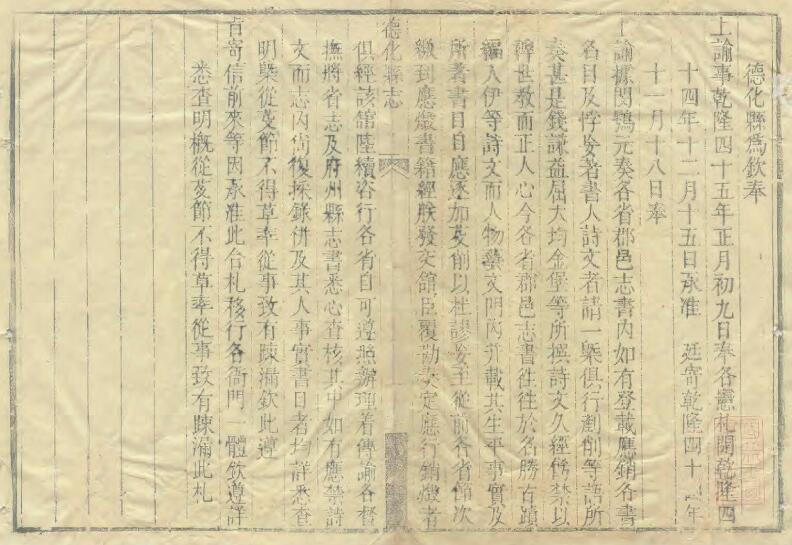 德化縣爲欽奉
上諭事乾隆四十五年正月初九日奉各憲札開乾隆四
十四年十二月十五日承准 廷寄乾隆四十四年
十一月十八日奉
上諭據閔鶚元奏各省郡邑志書內如有登載應銷各書
名目及悖妄著書人詩文者請一槩俱行剷削等語所
奏甚是錢謙益屈大均金堡等所撰詩文久經飭禁以
裨世教而正人心今各省郡邑志書往往於名勝古蹟
編入伊等詩文而人物藝文門內幷載其生平事實及
所著書目自應逐加芟削以杜謬妄至從前各省節次
繳到應燬書籍經朕發交館臣覆勘奏定應行銷燬者
德化縣志
俱經該館陸續咨行各省自可遵照辦理着傳諭各督
撫將省志及府州縣志書悉心查核其中如有應禁詩
文而志內尚復採錄併及其人事實書目者均詳悉查
明槩從芟節不得草率從事致有踈漏欽此遵
旨寄信前來等因承准此合札移行各衙門一體欽遵詳
悉查明概從芟節不得草率從事致有踈漏此札